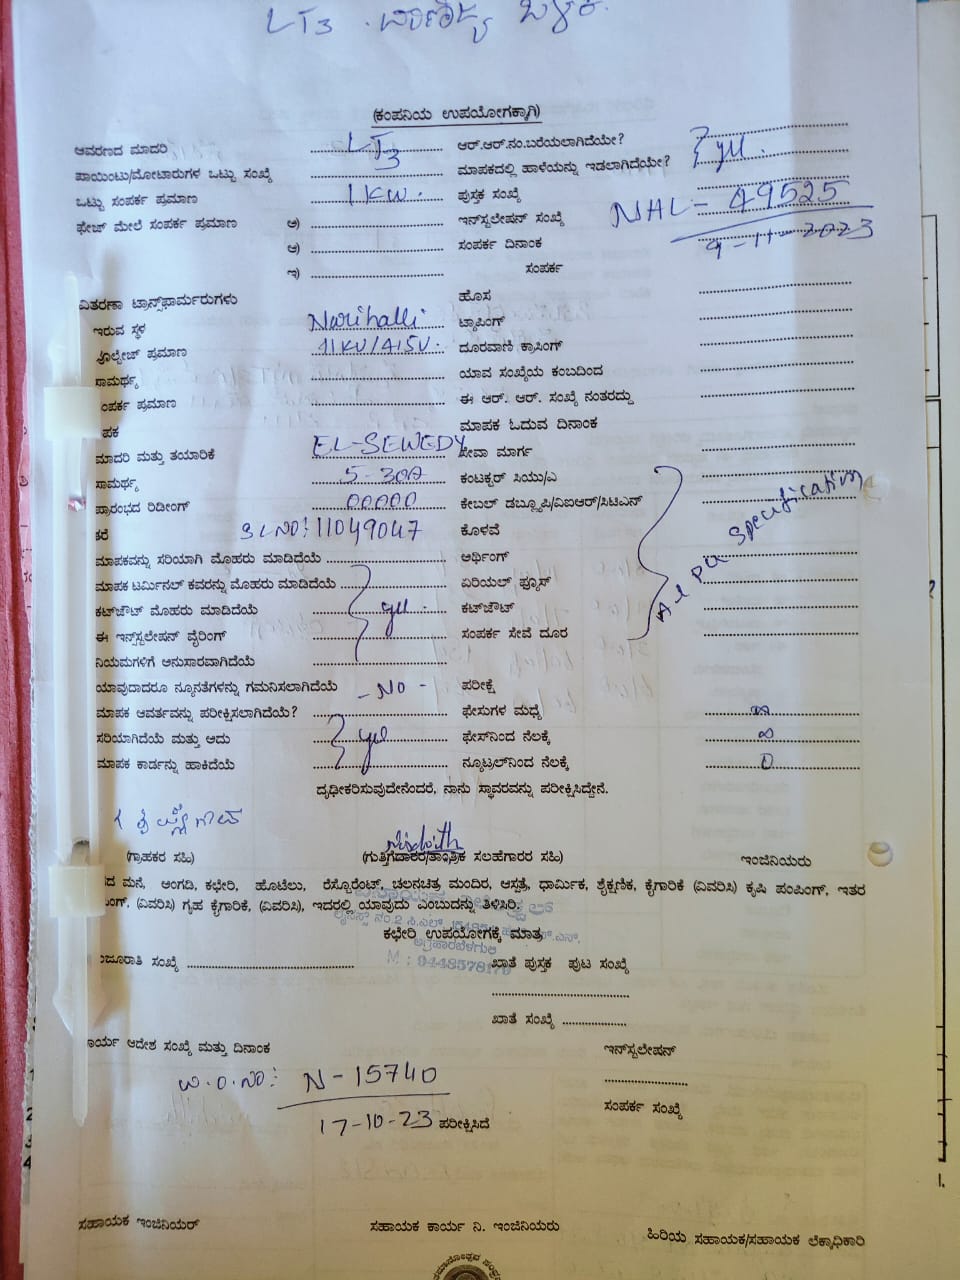 LT3 .
(ಕಂಪನಿಯ ಉಪಯೋಗಕ್ಕಾಗಿ)
ಆವರಣದ ಮಾದರಿ LT3 ಆರ್.ಆರ್.ನಂ.ಬರೆಯಲಾಗಿದೆಯೇ?
ಪಾಯಿಂಟು/ಮೋಟಾರುಗಳ ಒಟ್ಟು ಸಂಖ್ಯೆ ಮಾಪಕದಲ್ಲಿ ಹಾಳೆಯನ್ನು ಇಡಲಾಗಿದೆಯೇ?
ಒಟ್ಟು ಸಂಪರ್ಕ ಪ್ರಮಾಣ 1KW. ಪುಸ್ತಕ ಸಂಖ್ಯೆ
ಫೇಜ್ ಮೇಲೆ ಸಂಪರ್ಕ ಪ್ರಮಾಣ ಅ) ಇನ್‌ಸ್ಟಲೇಷನ್ ಸಂಖ್ಯೆ NHL- 49525
ಆ) ಸಂಪರ್ಕ ದಿನಾಂಕ 9-11-2023
ಇ) ಸಂಪರ್ಕ
ವಿತರಣಾ ಟ್ರಾನ್ಸ್‌ಫಾರ್ಮರುಗಳು ಹೊಸ
ಇರುವ ಸ್ಥಳ Narihalli ಟ್ಯಾಪಿಂಗ್
ವೋಲ್ಟೇಜ್ ಪ್ರಮಾಣ 11KV/415V. ದೂರವಾಣಿ ಕ್ರಾಸಿಂಗ್
ಸಾಮರ್ಥ್ಯ ಯಾವ ಸಂಖ್ಯೆಯ ಕಂಬದಿಂದ
ಸಂಪರ್ಕ ಪ್ರಮಾಣ ಈ ಆರ್. ಆರ್. ಸಂಖ್ಯೆ ನಂತರದ್ದು
ಮಾಪಕ ಓದುವ ದಿನಾಂಕ
ಮಾದರಿ ಮತ್ತು ತಯಾರಿಕೆ EL-SEWEDY ಸೇವಾ ಮಾರ್ಗ
ಸಾಮರ್ಥ್ಯ 5-30A ಕಂಟಕ್ಟರ್ ಸಿಯು/ಎ
ಪ್ರಾರಂಭದ ರಿಡೀಂಗ್ 00000 ಕೇಬಲ್ ಡಬ್ಲ್ಯೂಪಿ/ವಿಐಆರ್/ಸಿಟಿಎಸ್
SL NO: 11049047 ಕೊಳವೆ
ಮಾಪಕವನ್ನು ಸರಿಯಾಗಿ ಮೊಹರು ಮಾಡಿದೆಯೆ ಅರ್ಥಿಂಗ್
ಮಾಪಕ ಟರ್ಮಿನಲ್ ಕವರನ್ನು ಮೊಹರು ಮಾಡಿದೆಯೆ ಏರಿಯಲ್ ಫ್ಯೂಸ್
ಕಟ್‌ಔಟ್ ಮೊಹರು ಮಾಡಿದೆಯೆ ಕಟ್‌ಔಟ್
ಈ ಇನ್‌ಸ್ಟಲೇಷನ್ ವೈರಿಂಗ್ ಸಂಪರ್ಕ ಸೇವೆ ದೂರ
ನಿಯಮಗಳಿಗೆ ಅನುಸಾರವಾಗಿದೆಯೆ
As per specification
ಯಾವುದಾದರೂ ನ್ಯೂನತೆಗಳನ್ನು ಗಮನಿಸಲಾಗಿದೆಯೆ -NO- ಪರೀಕ್ಷೆ
ಮಾಪಕ ಆವರ್ತವನ್ನು ಪರೀಕ್ಷಿಸಲಾಗಿದೆಯೆ? ಫೇಸುಗಳ ಮಧ್ಯೆ ∞
ಸರಿಯಾಗಿದೆಯೆ ಮತ್ತು ಆದು ಫೇಸ್‌ನಿಂದ ನೆಲಕ್ಕೆ ∞
ಮಾಪಕ ಕಾರ್ಡನ್ನು ಹಾಕಿದೆಯೆ ನ್ಯೂಟ್ರಲ್‌ನಿಂದ ನೆಲಕ್ಕೆ 0
ದೃಢೀಕರಿಸುವುದೇನೆಂದರೆ, ನಾನು ಸ್ಥಾವರವನ್ನು ಪರೀಕ್ಷಿಸಿದ್ದೇನೆ.
(ಗ್ರಾಹಕರ ಸಹಿ) (ಗುತ್ತಿಗೆದಾರರ/ತಾಂತ್ರಿಕ ಸಲಹೆಗಾರರ ಸಹಿ) ಇಂಜಿನಿಯರು
ಮನೆ, ಅಂಗಡಿ, ಕಛೇರಿ, ಹೊಟೆಲು, ರೆಸ್ಟೊರೆಂಟ್, ಚಲನಚಿತ್ರ ಮಂದಿರ, ಆಸ್ಪತ್ರೆ, ಧಾರ್ಮಿಕ, ಶೈಕ್ಷಣಿಕ, ಕೈಗಾರಿಕೆ (ವಿವರಿಸಿ) ಕೃಷಿ ಪಂಪಿಂಗ್, ಇತರ
(ವಿವರಿಸಿ) ಗೃಹ ಕೈಗಾರಿಕೆ, (ವಿವರಿಸಿ), ಇದರಲ್ಲಿ ಯಾವುದು ಎಂಬುದನ್ನು ತಿಳಿಸಿರಿ.
ಕಛೇರಿ ಉಪಯೋಗಕ್ಕೆ ಮಾತ್ರ
ಅಗ್ರಹಾರಬೆಳಗುಲಿ
M : 9448578170
ಸಂಖ್ಯೆ ಖಾತೆ ಪುಸ್ತಕ ಪುಟ ಸಂಖ್ಯೆ
ಖಾತೆ ಸಂಖ್ಯೆ
ಕಾರ್ಯ ಆದೇಶ ಸಂಖ್ಯೆ ಮತ್ತು ದಿನಾಂಕ ಇನ್‌ಸ್ಟಲೇಷನ್
N-15740
ಸಂಪರ್ಕ ಸಂಖ್ಯೆ
17-10-23 ಪರೀಕ್ಷಿಸಿದೆ
ಸಹಾಯಕ ಇಂಜಿನಿಯರ್ ಸಹಾಯಕ ಕಾರ್ಯ ನಿ. ಇಂಜಿನಿಯರು ಹಿರಿಯ ಸಹಾಯಕ/ಸಹಾಯಕ ಲೆಕ್ಕಾಧಿಕಾರಿ